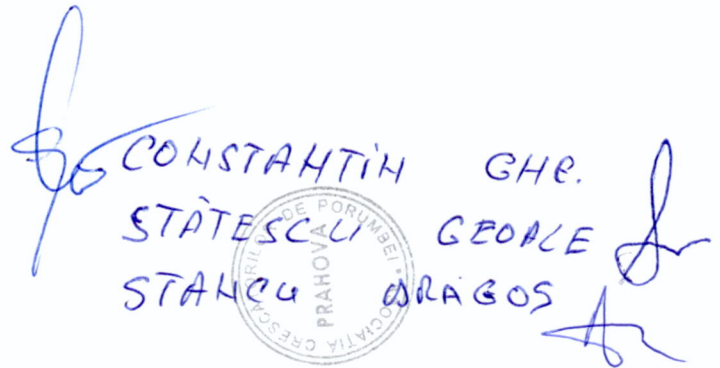 CONSTANTIN GHE.
STĂTESCU GEORGE
STANCU DRAGOS
ASOCIAȚIA CRESCĂTORILOR DE PORUMBEI
PRAHOVA